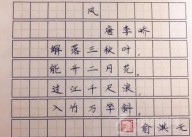 风
唐 李峤
解落三秋叶，
能开二月花，
过江千尺浪，
入竹万竿斜，
俞淇